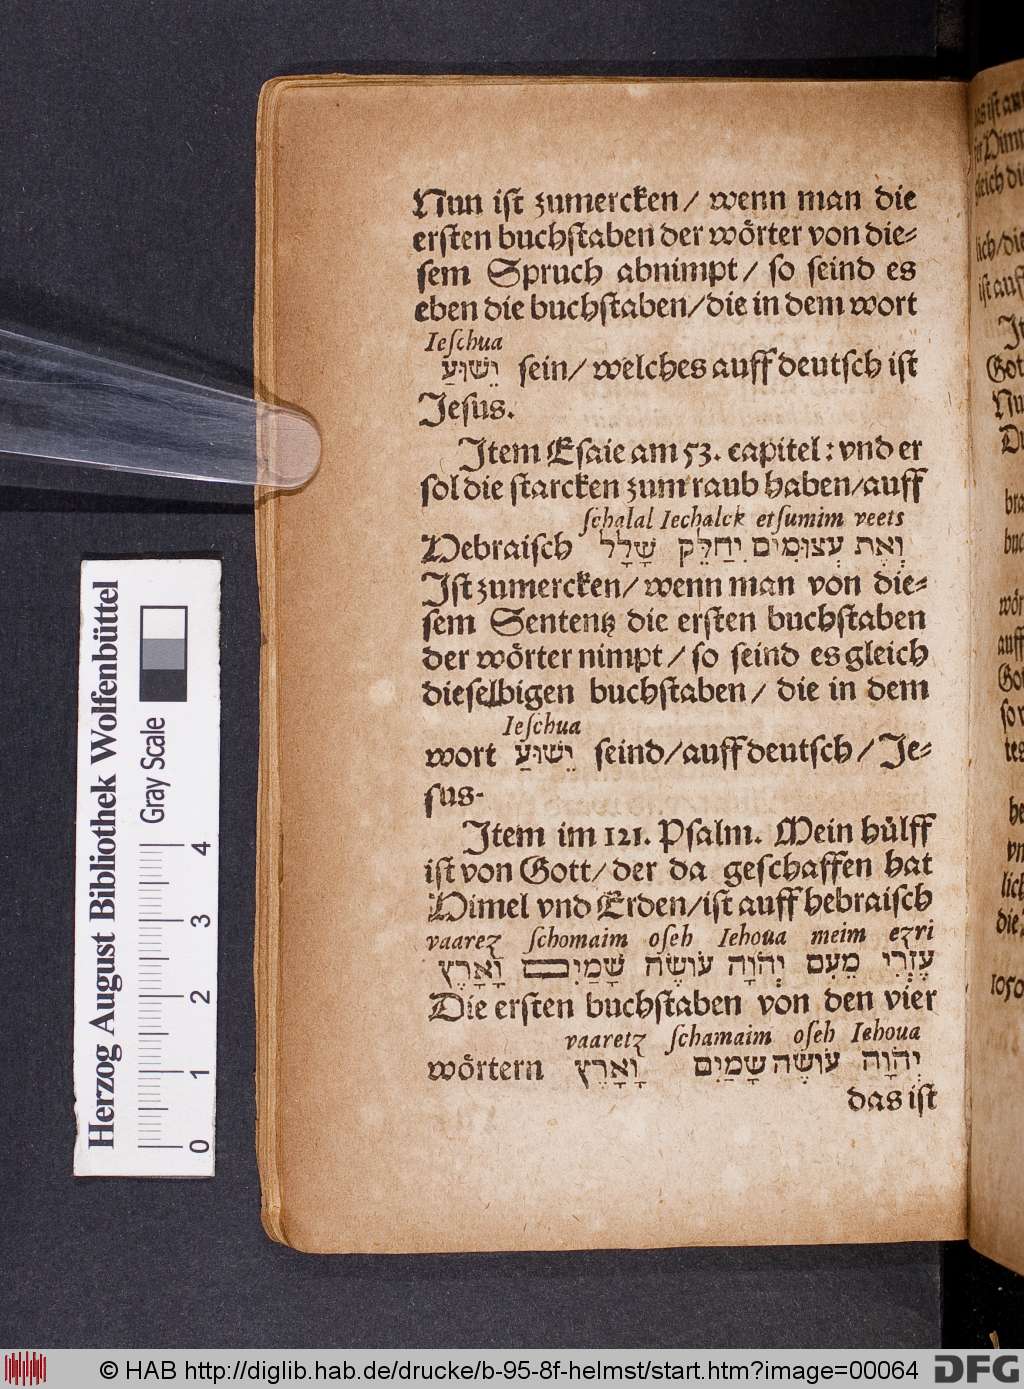 Nun ist zumercken/ wenn man die
ersten buchstaben der wörter von die-
sem Spruch abnimpt/ so seind es
eben die buchstaben/die in dem wort
Ieschua
יֵשׁוּעַ sein/ welches auff deutsch ist
Jesus.
Item Esaie am 53. capitel: vnd er
sol die starcken zum raub haben/auff
schalal Iechalck etsumim veets
Hebraisch וְאֶת עְצוּמִים יִחַלֵּק שָׁלָל
Ist zumercken/ wenn man von die-
sem Sententz die ersten buchstaben
der wörter nimpt/ so seind es gleich
dieselbigen buchstaben/ die in dem
Ieschua
wort יֵשׁוּעַ seind/auff deutsch/ Je-
sus.
Item im 121. Psalm. Mein hülff
ist von Gott/ der da geschaffen hat
Himel vnd Erden/ist auff hebraisch
vaarez schomaim oseh Iehoua meim ezri
עֶזְרִי מֵעִם יְהֹוָה עֹושֶׂה שָׁמַיִם וָאָרֶץ
Die ersten buchstaben von den vier
vaaretz schamaim oseh Iehoua
wörtern יְהֹוָה עֹושֶׂה שָׁמַיִם וָאָרֶץ
das ist
Herzog August Bibliothek Wolfenbüttel
Gray Scale
0 1 2 3 4
© HAB http://diglib.hab.de/drucke/b-95-8f-helmst/start.htm?image=00064
DFG